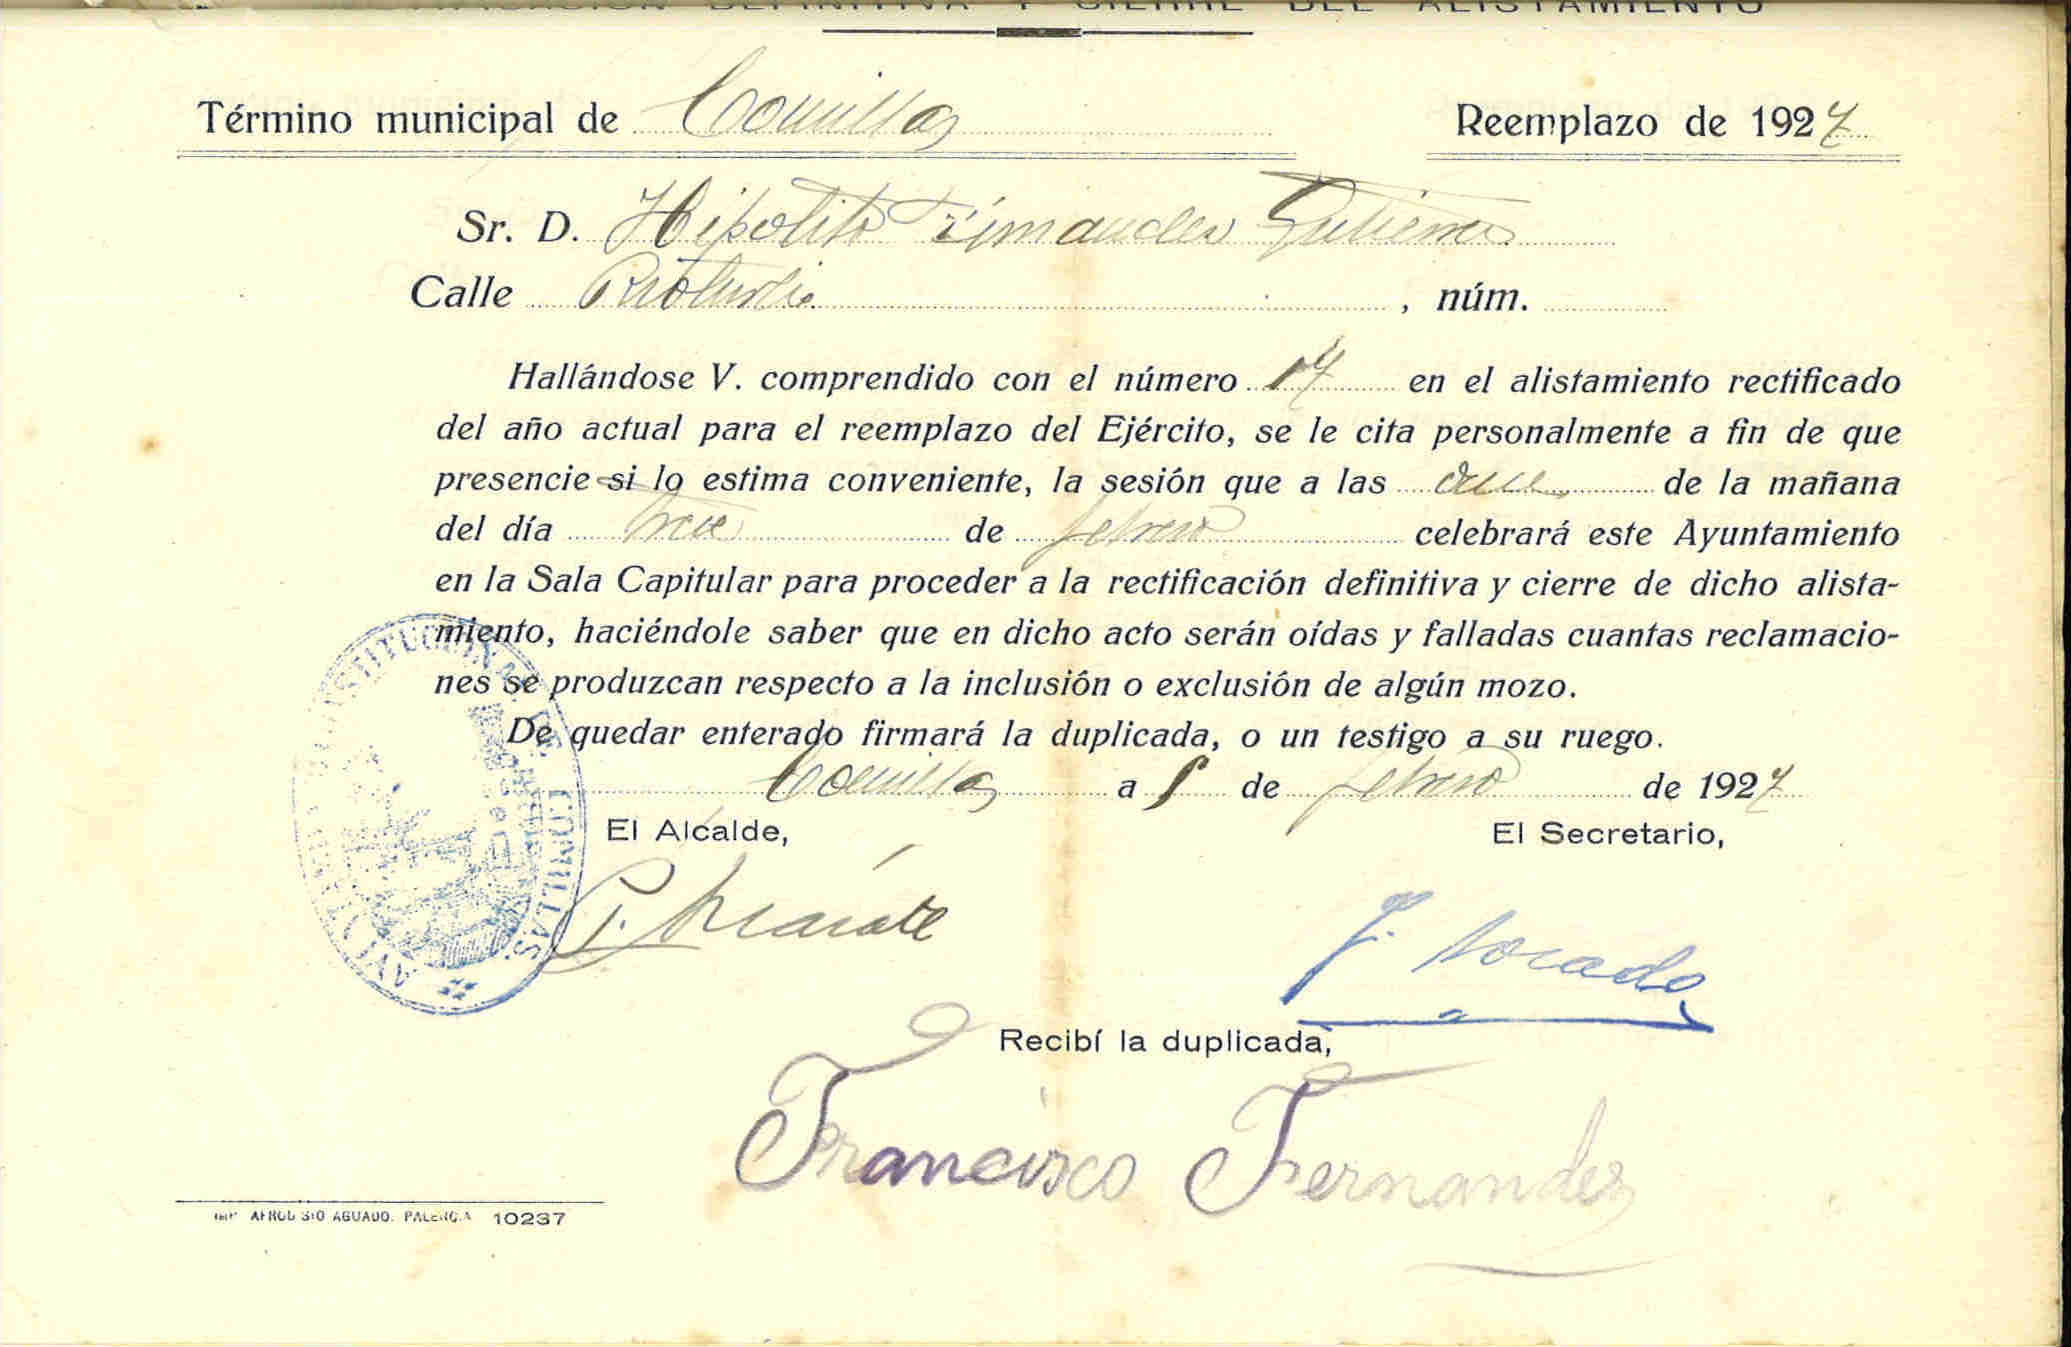 RECTIFICACIÓN DEFINITIVA Y CIERRE DEL ALISTAMIENTO
Término municipal de Comillas Reemplazo de 1927
Sr. D. Hipolito Fernandez Gutierrez
Calle , núm.
Hallándose V. comprendido con el número 17 en el alistamiento rectificado
del año actual para el reemplazo del Ejército, se le cita personalmente a fin de que
presencie si lo estima conveniente, la sesión que a las once de la mañana
del día trece de febrero celebrará este Ayuntamiento
en la Sala Capitular para proceder a la rectificación definitiva y cierre de dicho alista-
miento, haciéndole saber que en dicho acto serán oídas y falladas cuantas reclamacio-
nes se produzcan respecto a la inclusión o exclusión de algún mozo.
De quedar enterado firmará la duplicada, o un testigo a su ruego.
Comillas a de febrero de 1927
El Alcalde, El Secretario,
CONSTITUCIONAL DE COMILLAS
Recibí la duplicada,
Francisco Fernandez
IMP. AFRODISIO AGUADO. PALENCIA 10237